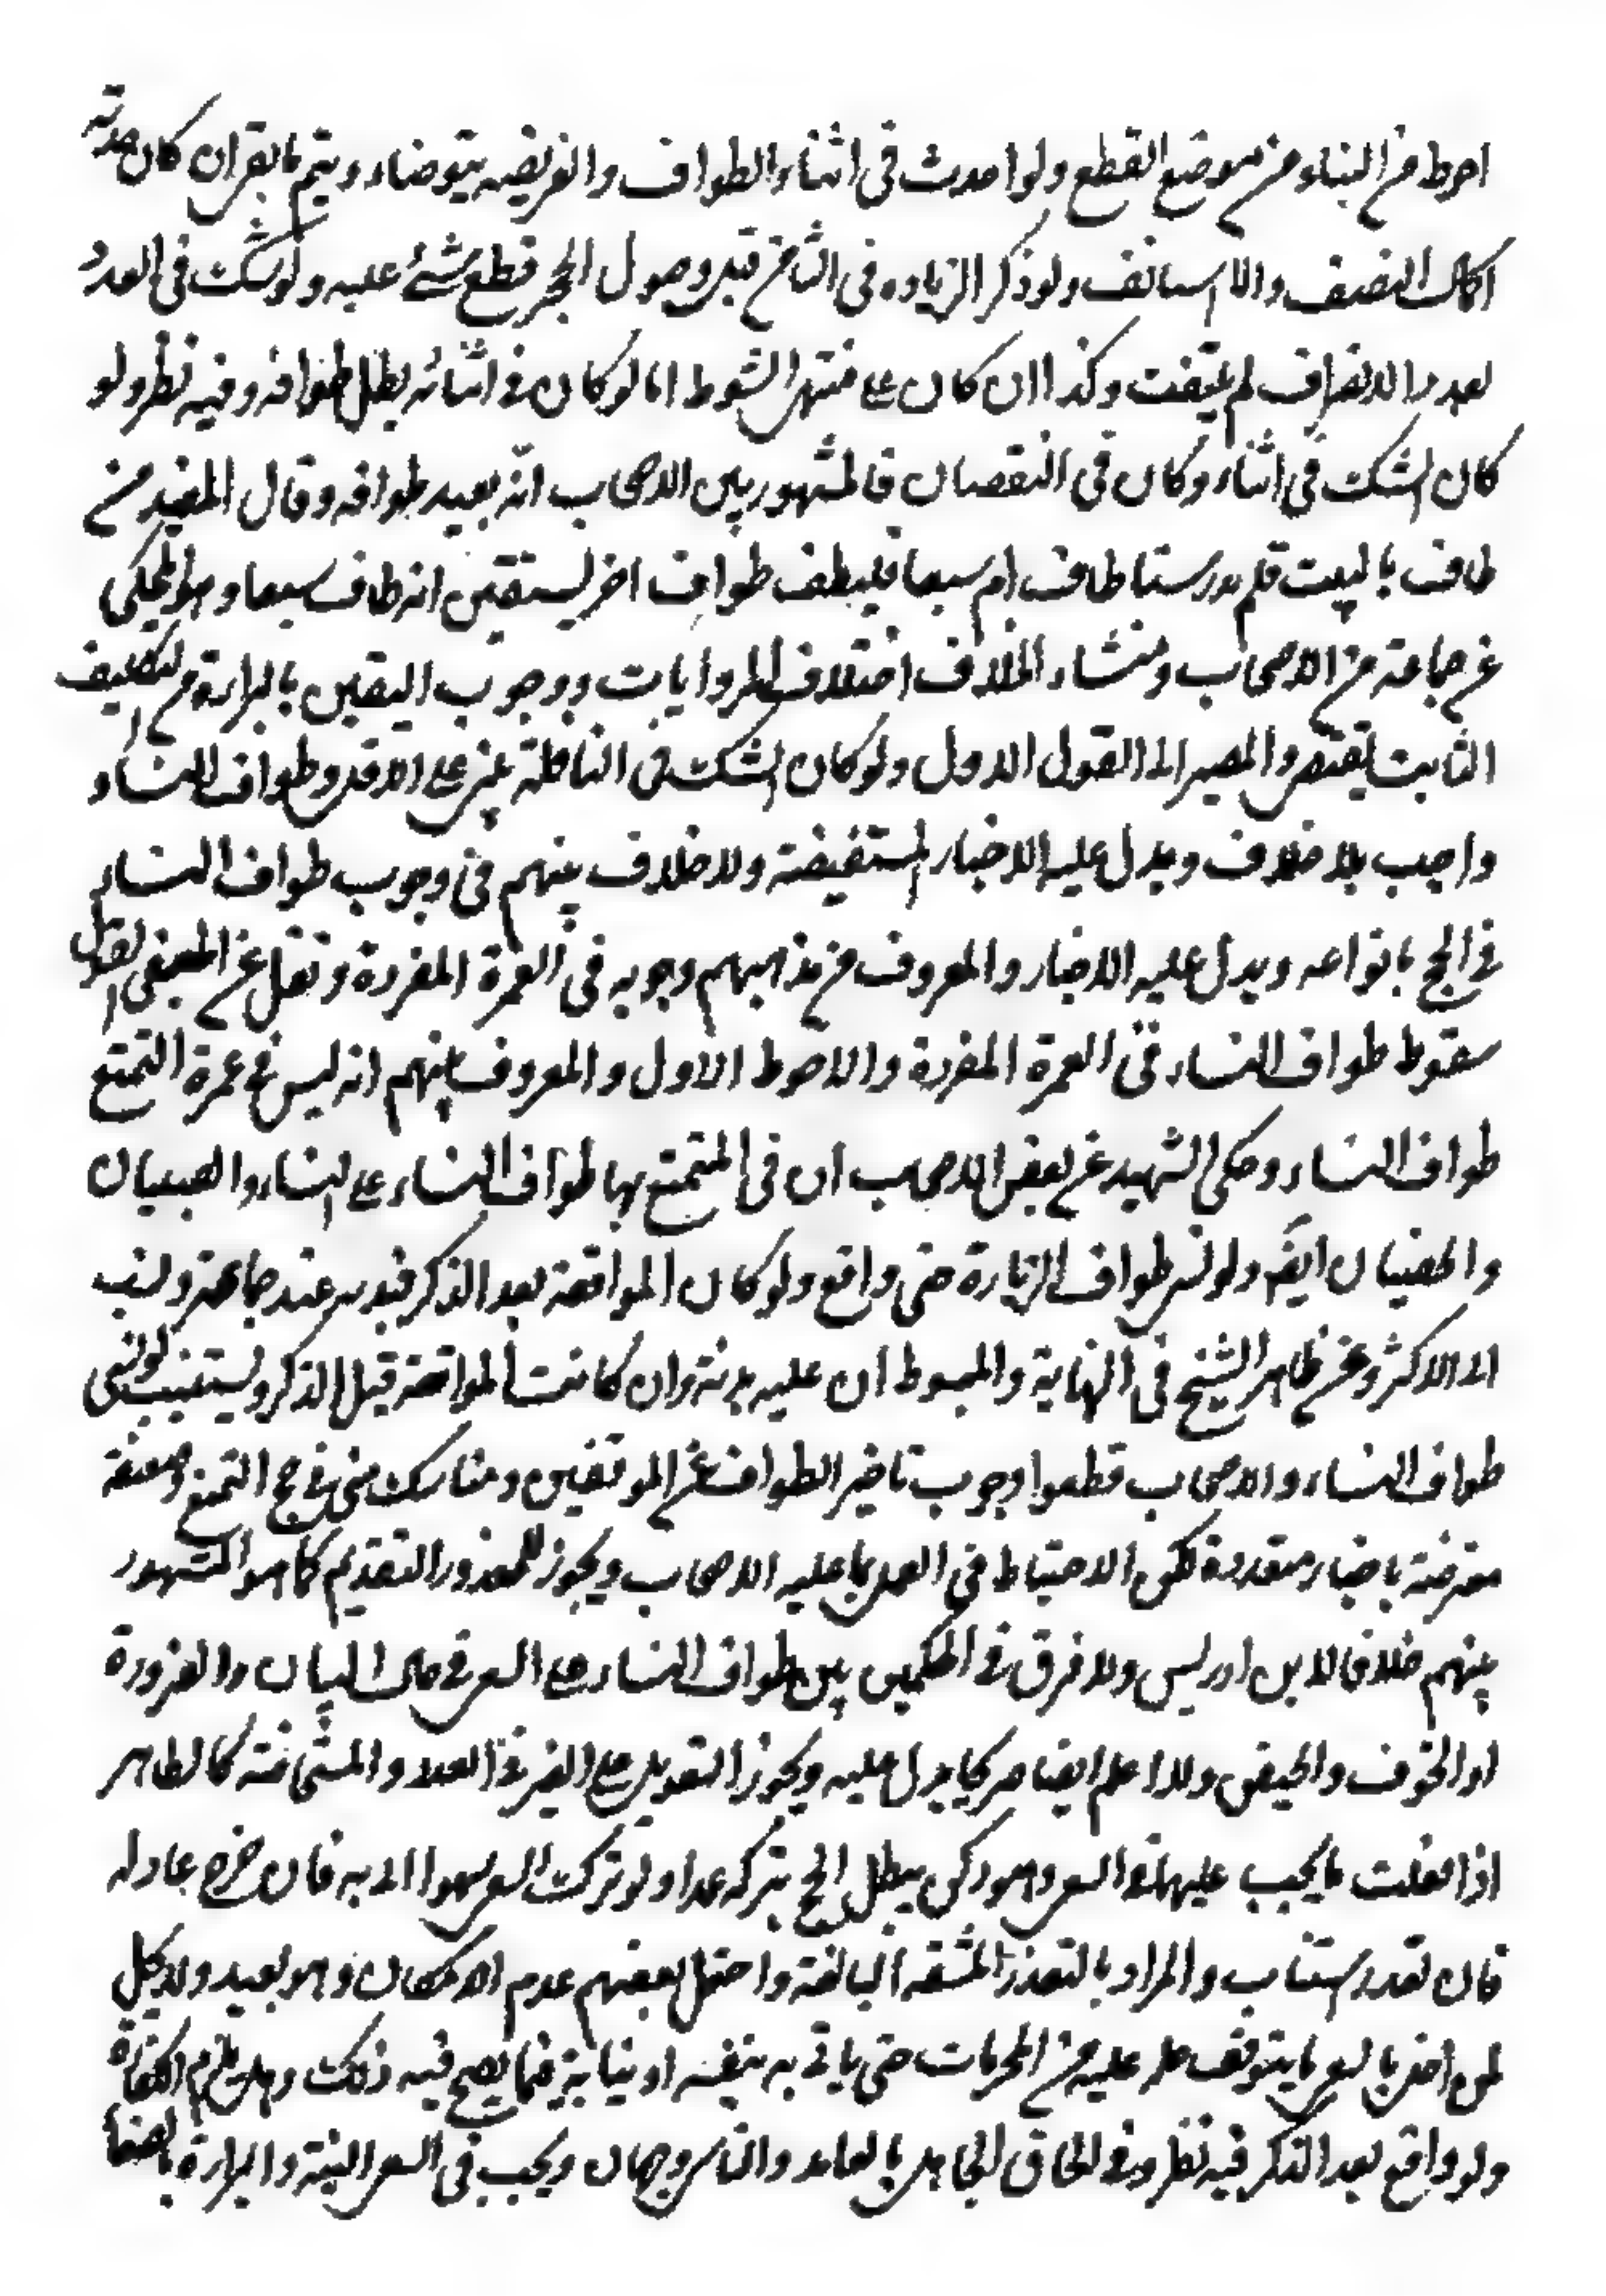 احوط من البناء من موضع القطع ولو احدث فى اثناء الطواف والفريضه يتوضاء ويتم بالقران كان حدثه
اكمال النصف والا استانف ولو ذكر الزياده فى الثامن قبل وصول الحجر قطع شئ عليه ولو شك فى العدد
بعد الانصراف لم يلتفت وكذا ان كان على منتهى الشوط اما لو كان فى اثنائه بطل طوافه وفيه نظر ولو
كان الشك فى اثناء وكان فى النقصان فالمشهور بين الاصحاب انه يعيد طوافه وقال المفيد من
طاف بالبيت فلم يدر ستا طاف ام سبعا فليطف طواف اخر ليستيقن انه طاف سبعا وهو المحكى
عن جماعة من الاصحاب ومنشاء الخلاف اختلاف الروايات ووجوب اليقين بالبراءة من التكليف
الثابت يقتضى والمصير الى القول الاول ولو كان الشك فى النافلة يبنى على الاقل وطواف النساء
واجب بلا خلاف ويدل عليه الاخبار المستفيضة ولا خلاف بينهم فى وجوب طواف النساء
فى الحج بانواعه ويدل عليه الاخبار والمعروف من مذهبهم وجوبه فى العمرة المفردة ونقل عن الجعفى القول
سقوط طواف النساء فى العمرة المفردة والاحوط الاول والمعروف بينهم انه ليس فى عمرة التمتع
طواف النساء وحكى الشهيد عن بعض الاصحاب ان فى المتمتع بها طواف النساء على النساء والصبيان
والخصيان ايضً ولو نسى طواف الزيارة حتى واقع ولو كان المواقعة بعد الذكر فبدنه عند جماعة ونسب
الى الاكثر وعن ظاهر الشيخ فى النهاية والمبسوط ان عليه بدنة وان كانت المواقعة قبل الذكر ويستنيب لو نسى
طواف النساء والاصحاب قطعوا وجوب تاخير الطواف عن الموقفين ومناسك منى فى حج التمتع وصفة
معترضة باخبار متعددة لكن الاحتياط فى العمل بما عليه الاصحاب ويجوز للمعذور التقديم كما هو المشهور
بينهم خلافا لابن ادريس ولا فرق فى الحكمين بين طواف النساء على السعى فى حال البيان والضرورة
او الخوف والحيض ولا اعلم ايضا صريحا يدل عليه ويجوز التعويل على الغير فى العدد والمستحاضة كالطاهر
اذا فعلت ما يجب عليها السعى وهو ركن يبطل الحج بتركه عمدا ولو ترك السعى سهوا اتى به فان خرج عاد له
فان تعذر استناب والمراد بالتعذر المشقة البالغة واحتمل بعضهم عدم الامكان وهو بعيد ولا يحل
لمن اخل بالسعى ما يتوقف حله عليه من المحرمات حتى ياتى به بنفسه او نيابة فيما يصح فيه ذلك وهل يلزم الكفارة
ولو واقع بعد الذكر فيه نظر وفى الحاق الجاهل بالعامد والناسى وجهان ويجب فى السعى النية والبداءة بالصفا